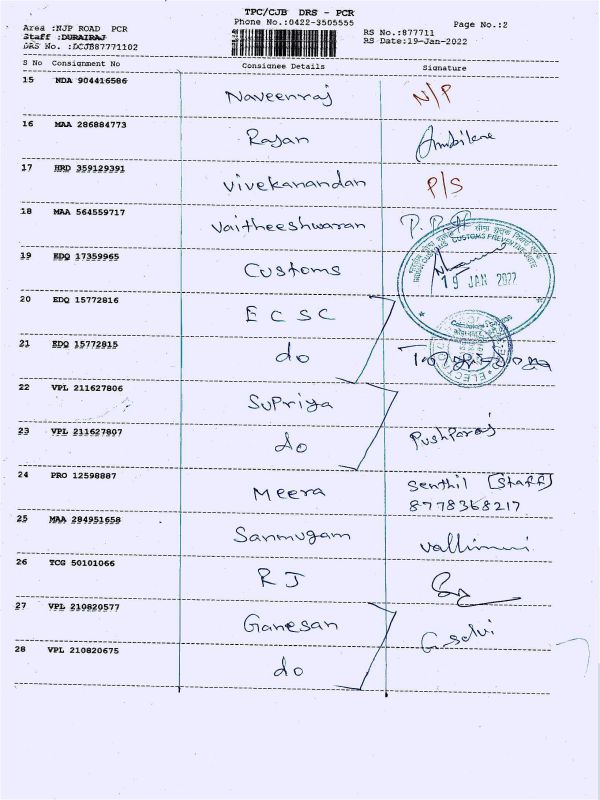 TPC/CJB DRS - PCR
Phone No.:0422-3505555
Page No.:2
Area :NJP ROAD PCR
RS No.:877711
Staff :DURAIRAJ
RS Date:19-Jan-2022
DRS No. :DCJB87771102
S No Consignment No Consignee Details Signature
15 NDA 904416586 Naveenraj N/P
16 MAA 286884773 Rajan
17 HRD 359129391 Vivekanandan P/S
18 MAA 564559717 Vaitheeshwaran
19 EDQ 17359965 Customs
CUSTOMS PREVENTIVE
19 JAN 2022
20 EDQ 15772816 E C S C
21 EDQ 15772815 do
22 VPL 211627806 Supriya
23 VPL 211627807 do Pushparaj
24 PRO 12598887 Meera Senthil (Staff)
8778368217
25 MAA 284951658 Sanmugam
26 TCG 50101066 R J
27 VPL 210820577 Ganesan G. selvi
28 VPL 210820675 do